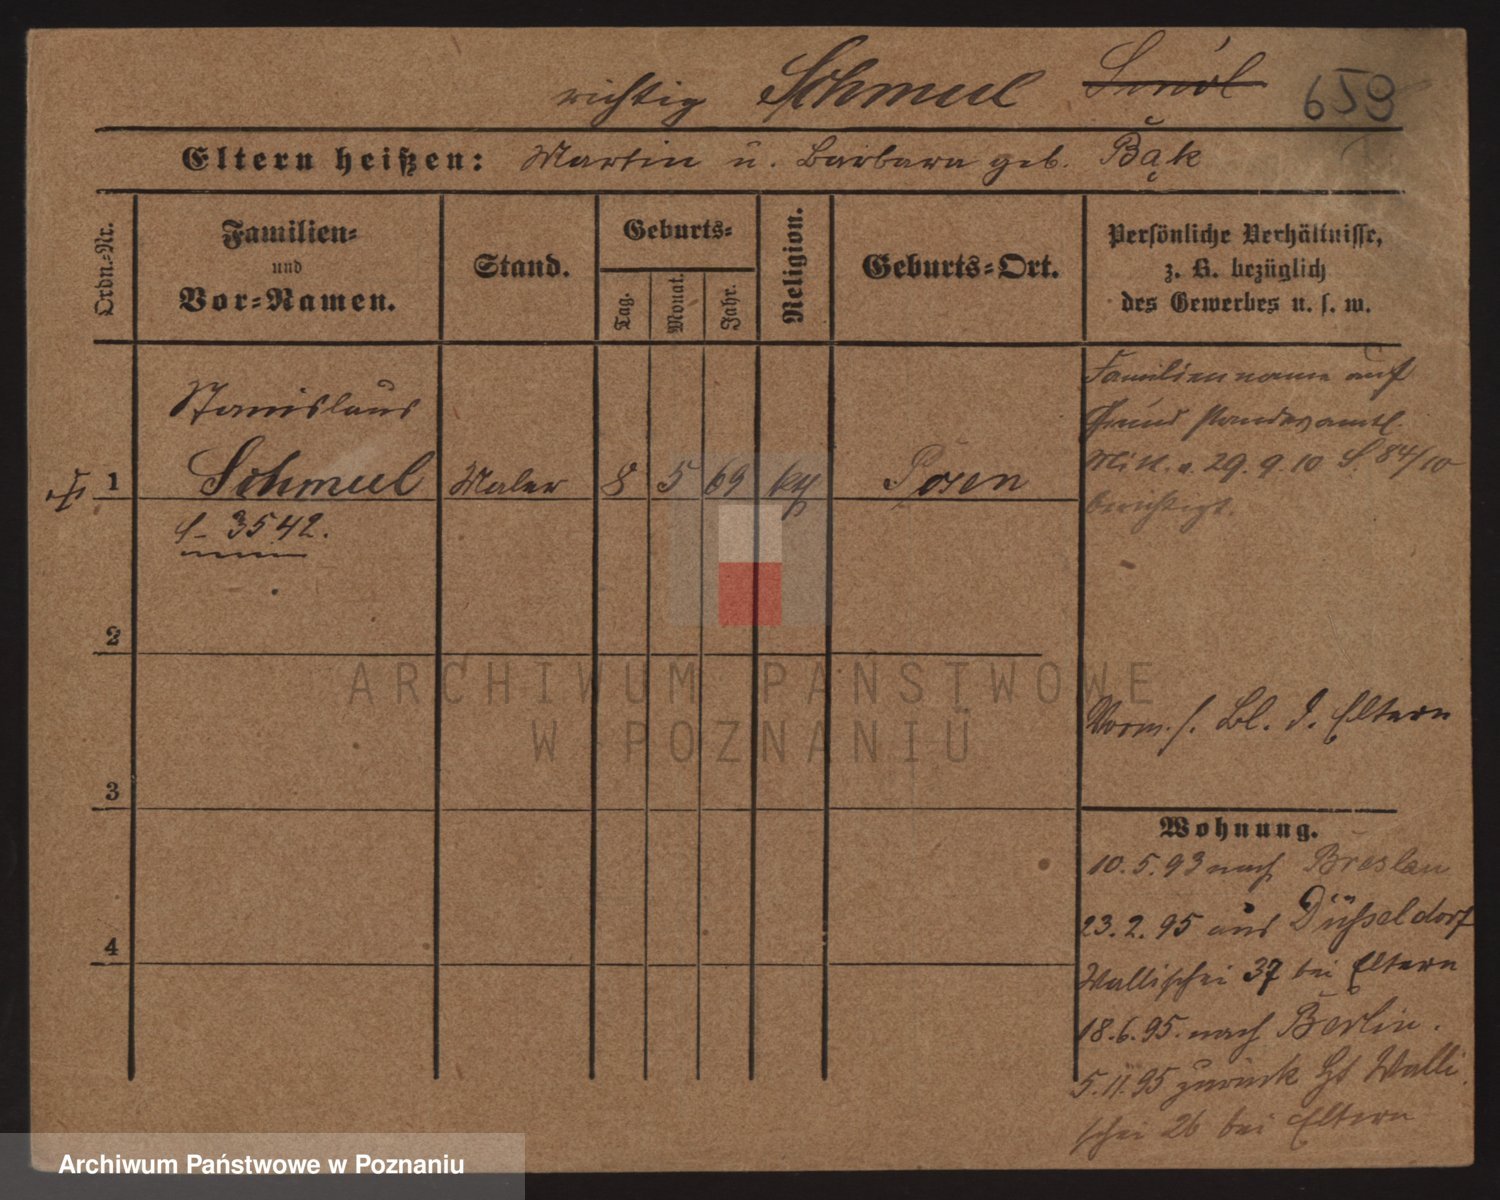 richtig Schmeel Smól 659
Eltern heißen: Martin u. Barbara geb. Bąk
Ordn.-Nr.
Familien-
und
Vor-Namen.
Stand.
Geburts-
Tag.
Monat.
Jahr.
Religion.
Geburts-Ort.
Persönliche Verhältnisse,
z. B. bezüglich
des Gewerbes u. s. w.
Stanislaus
1 Schmeel Maler 8 5 69 kth Posen
f. 3542.
Familienname auf
Grund standesamtl.
Mitt. v. 29.9.10 S. 84/10
berichtigt.
2
Vorm. s. Bl. d. Eltern
3
Wohnung.
10.5.93 nach Breslau
23.2.95 aus Düsseldorf
4
Wallischei 37 bei Eltern
18.6.95. nach Berlin.
5.11.95 zurück Walli
schei 26 bei Eltern
ARCHIWUM PAŃSTWOWE
W POZNANIU
Archiwum Państwowe w Poznaniu